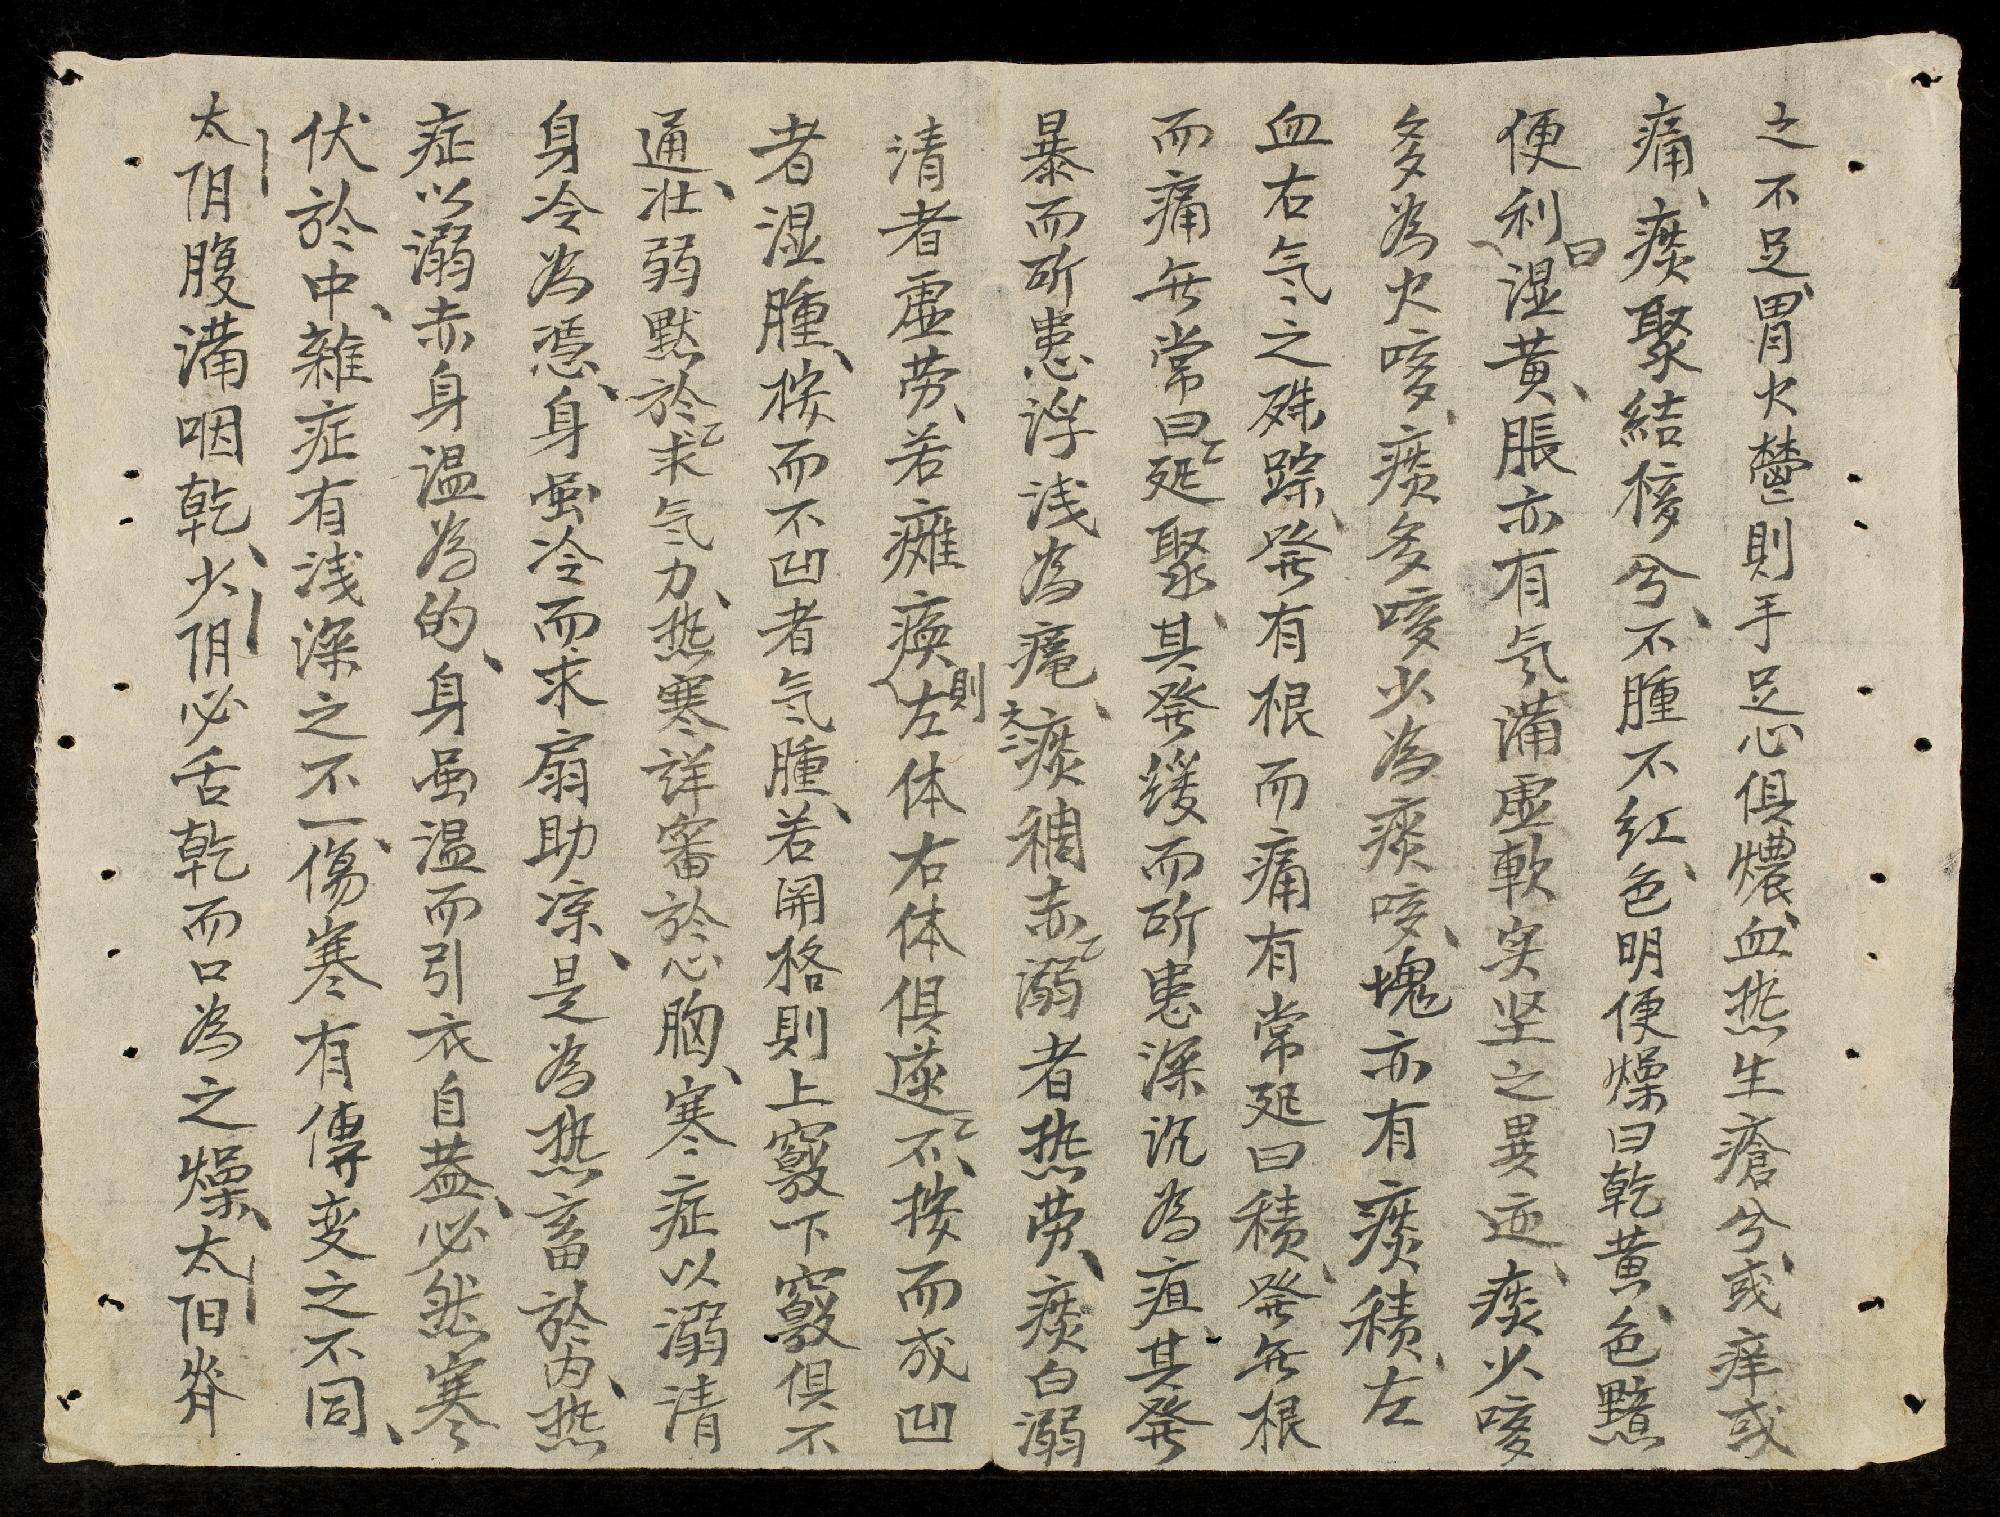 之不足胃火鬱則手足心俱㶶血热生瘡兮或痒或
痛痰聚結核兮不腫不红色明便燥曰乾黄色黯
便利曰湿黄脹亦有氣滿虚軟实坚之異迹痰火咳
多為火咳痰多咳少為痰咳塊亦有痰積左
血右氣之殊踪癹有根而痛有常延曰積癹無根
而痛無常曰延聚其發緩而所患深沉為疽其發
暴而所患浮浅為癰痰稠赤溺者热劳痰白溺
清者虚劳若癱瘓則左体右体俱遂不按而成凹
者湿腫按而不凹者氣腫若関格則上竅下竅俱不
通壮弱默於求氣力热寒詳審於心胸寒症以溺清
身冷為憑身虽冷而求扇助凉是為热畜於内热
症以溺赤身温為的身虽温而引衣自蓋必然寒
伏於中雜症有浅深之不一傷寒有傳变之不同
太阴腹滿咽乾少阴必舌乾而口為之燥太阳脊